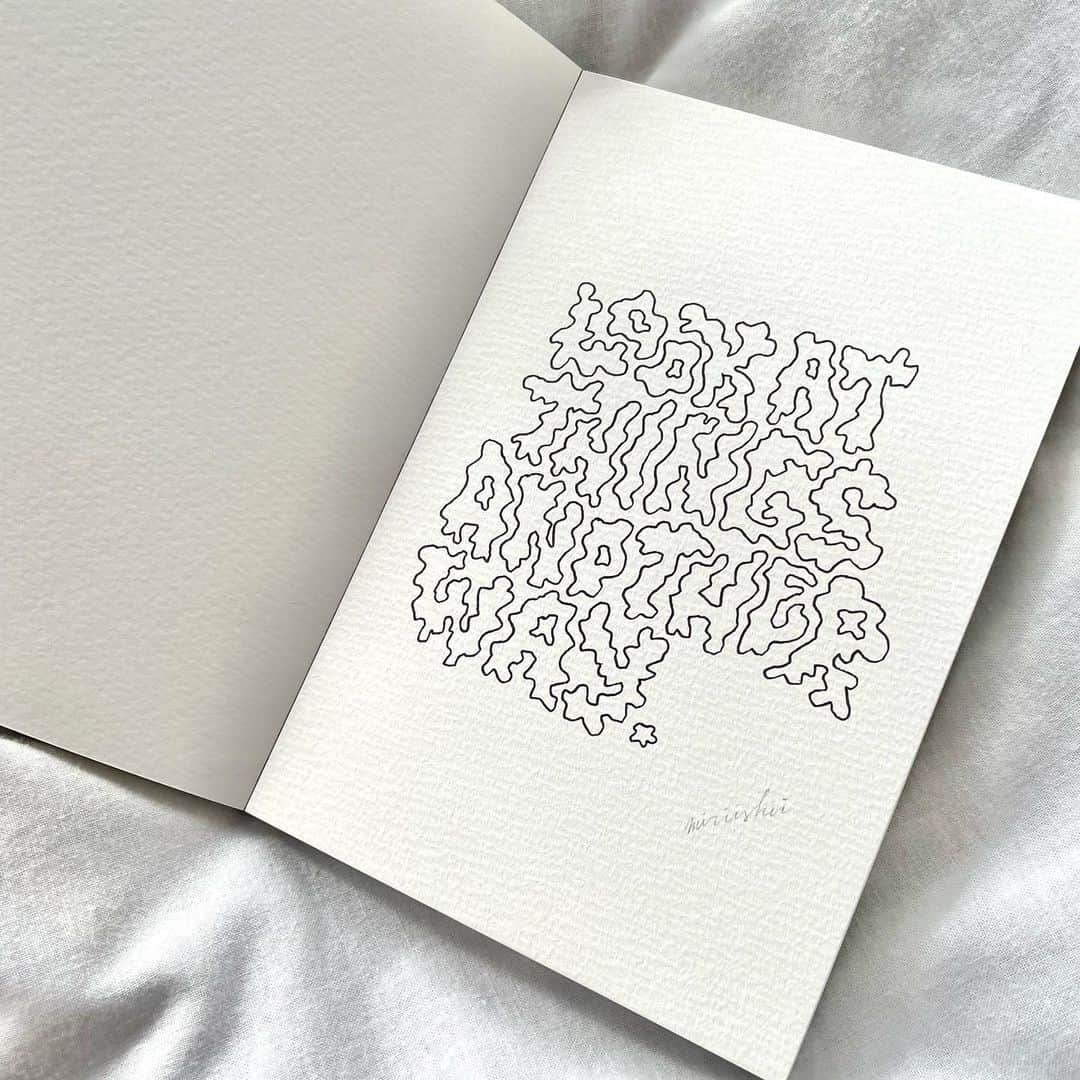 LOOK AT
THINGS
ANOTHER
WAY.